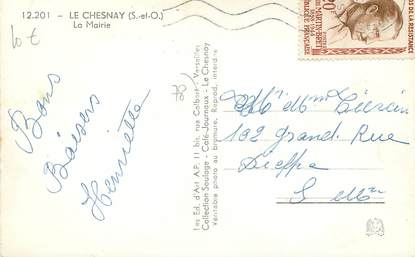 12.201 - LE CHESNAY (S.-et-O.)
La Mairie
10 €
78
Bons
Baisers
Henriette
Les Ed. d'Art A.P. 11 bis, rue Colbert - Versailles
Collection Soulage - Café-Journaux - Le Chesnay
Véritable photo au bromure, Reprod. interdite
OS DE LA RÉSISTANCE
MARTIN-BRET
POSTES
1898-1944
FRANÇAISE
Mr et Mme
192 Grand. Rue
Dieppe
S. Mme